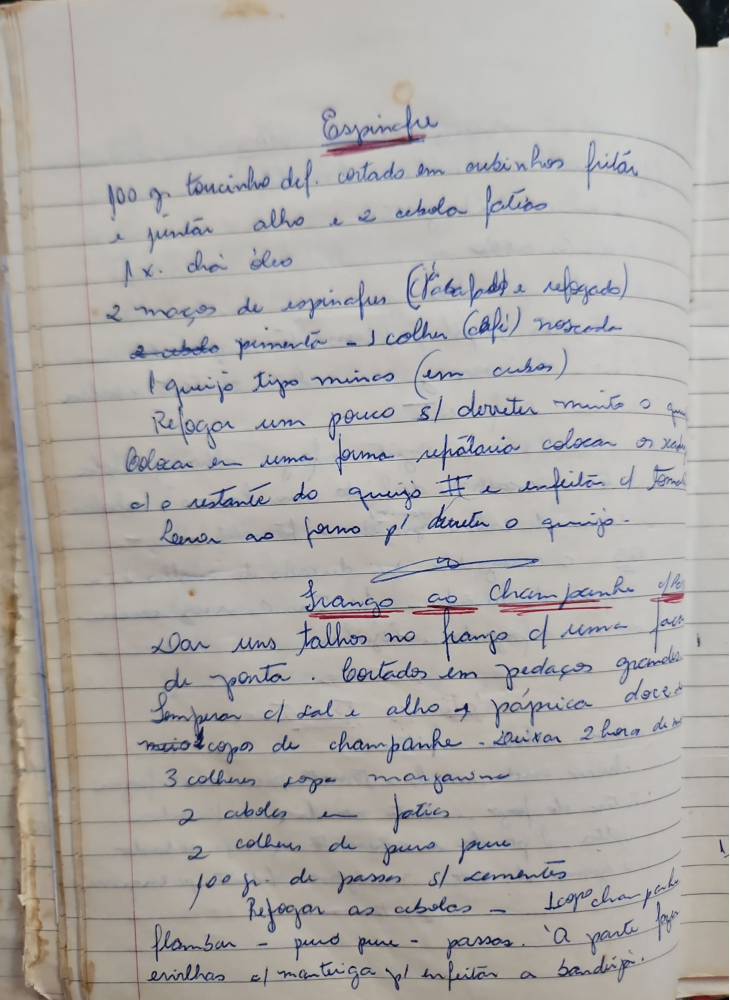 Espinafre
100 gr toucinho def. cortado em cubinhos fritar
e juntar alho e 2 cebola fatias
1 x. chá óleo
2 maços de espinafres (já e refogado)
pimenta - 1 colher (café) noscada
1 queijo tipo minas (em cubos)
Refogar um pouco s/ derreter muito o
Colocar em uma forma colocar os
c/ o restante do queijo # e enfeitar c/
Levar ao forno p/ derreter o queijo.
Frango ao champanhe
Dar uns talhos no frango c/ uma faca
de ponta. Cortados em pedaços grandes
Temperar c/ sal e alho, páprica doce
2 copos de champanhe. Deixar 2 hora
3 colheres sopa margarina
2 cebolas em fatias
2 colheres de puro pure
100 gr. de passas s/ sementes
Refogar as cebolas - 1 copo champanhe
flambar - puro pure - passas. A parte fazer
ervilhas c/ manteiga p/ enfeitar a bandeija.